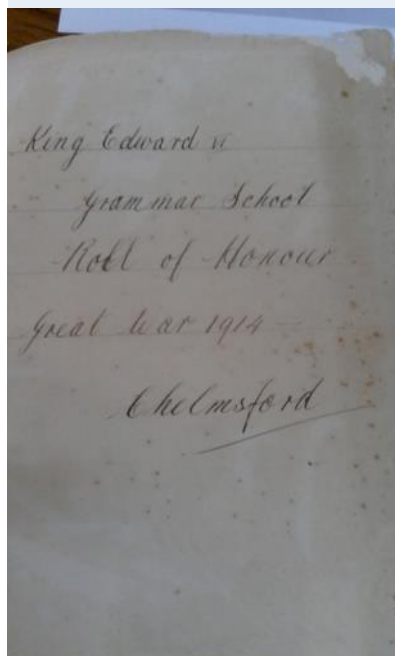 King Edward vi
Grammar School
Roll of Honour
Great War 1914
Chelmsford